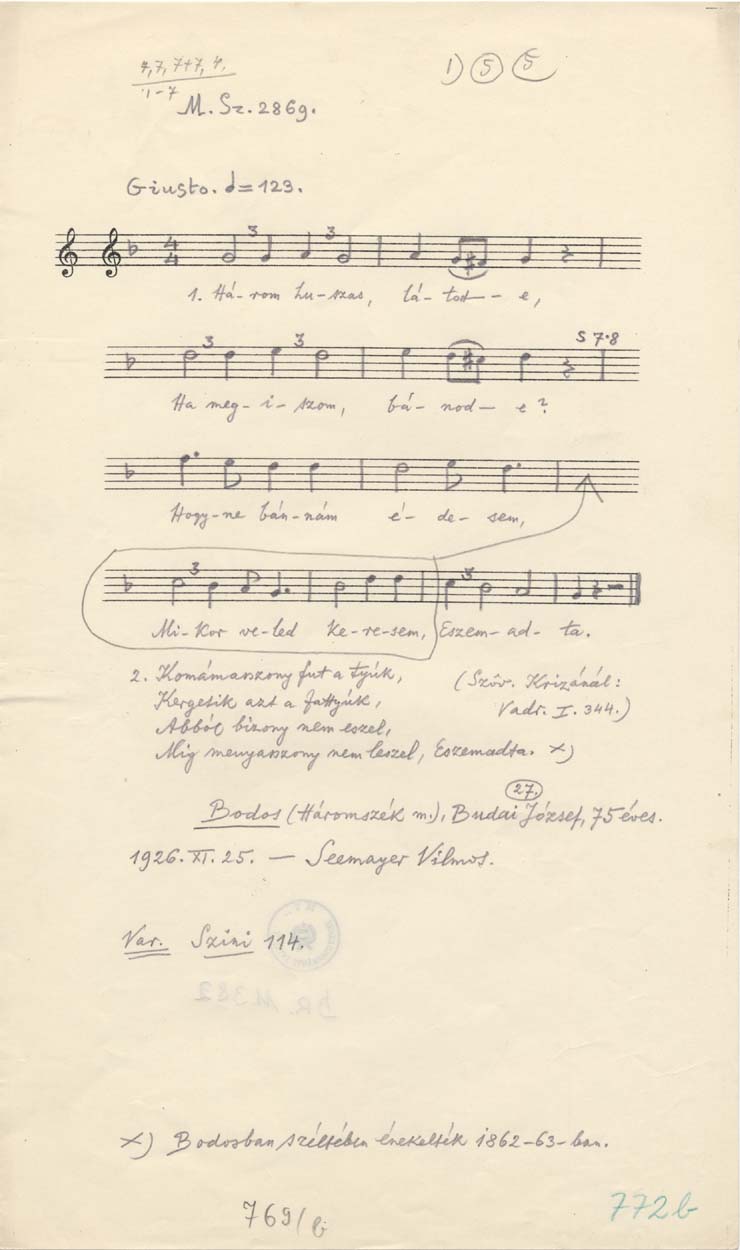 7, 7, 7+7, 4.
1-7
1) 5 5
M. Sz. 2869.
Giusto. = 123.
4
4
3 3
1. Há-rom hu-szas, lá-tod-e,
3 3 S 7·8
Ha meg-i-szom, bá-nod-e?
Hogy-ne bán-nám é-de-sem,
3 3
Mi-kor ve-led ke-re-sem, Eszem-ad-ta.
2. Komámasszony fut a tyúk, (Szöv. Krizánál:
Kergetik azt a fattyúk, Vadr. I. 344.)
Abból bizony nem eszel,
Míg menyasszony nem leszel, Eszemadta. x)
27.
Bodos (Háromszék m.), Budai József, 75 éves.
1926. XI. 25. — Seemayer Vilmos.
Var. Szini 114.
BR. 11382
x) Bodosban széltében énekelték 1862-63-ban.
769/b
772b